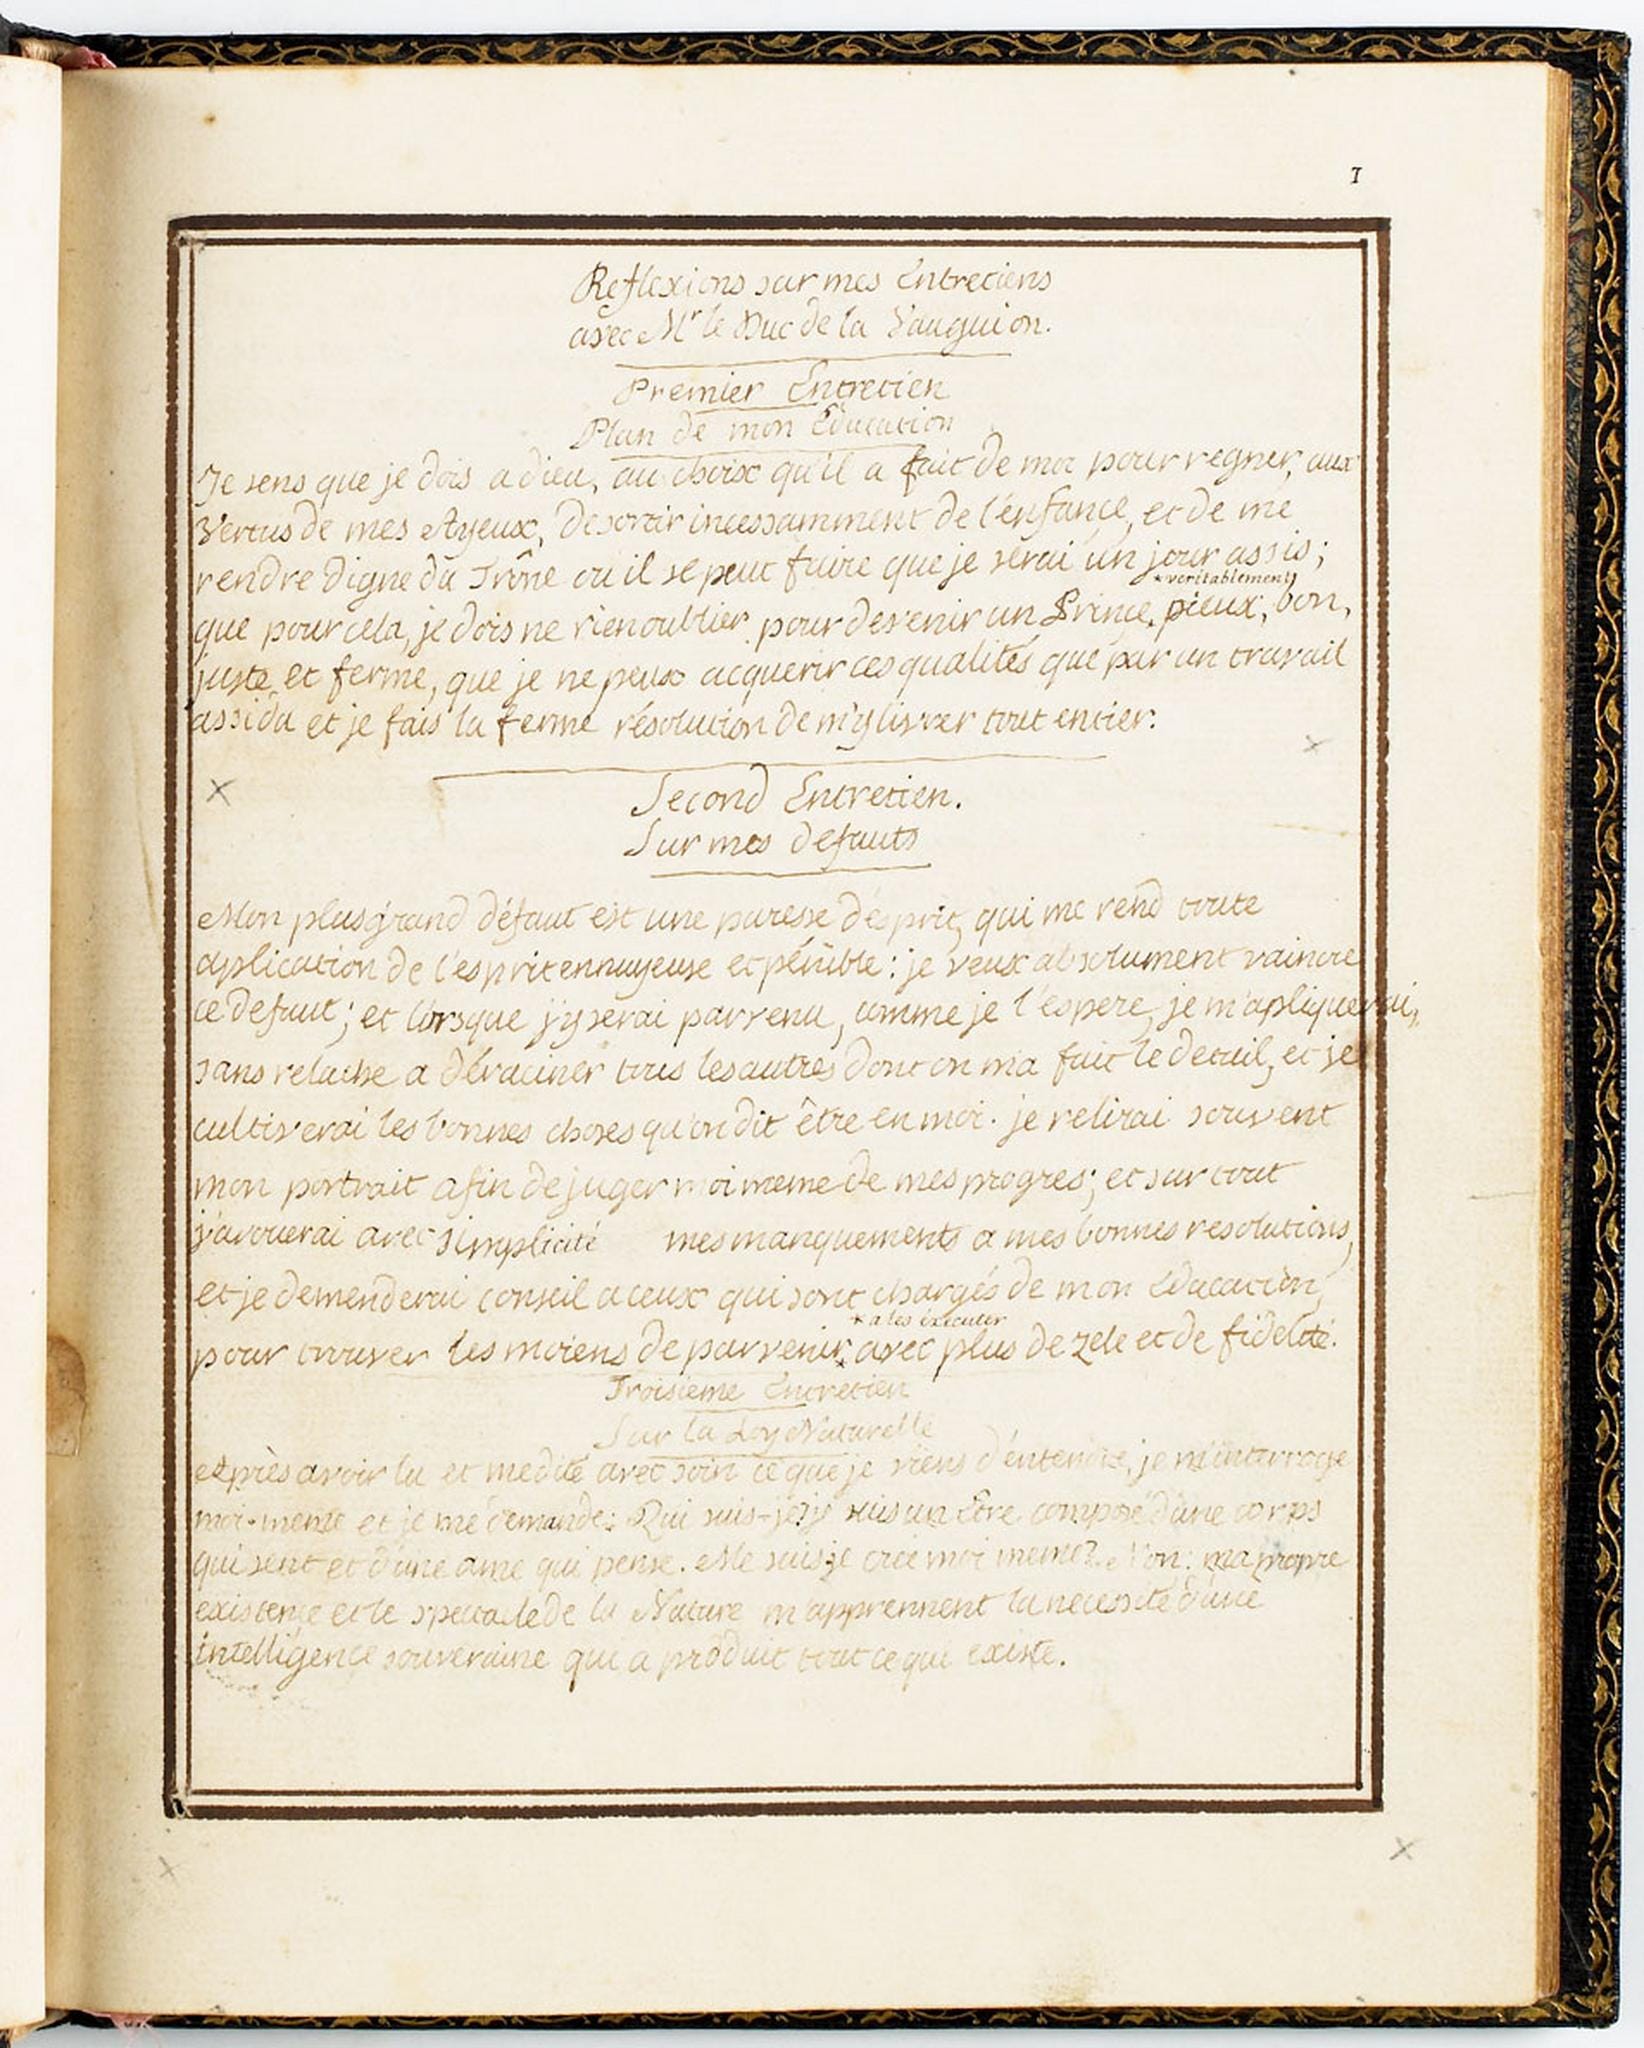 1
Reflexions sur mes Entretiens
avec Mr le Duc de la Vauguion.
Premier Entretien
Plan de mon Education
Je sens que je dois a dieu, au choix qu'il a fait de moi pour regner, aux
Vertus de mes Ayeux, de sortir incessamment de l'énfance, et de me
rendre digne du Trône ou il se peut faire que je serai un jour assis;
*veritablement
que pour cela, je dois ne rien oublier pour devenir un Prince * pieux, bon,
juste et ferme, que je ne peux acquerir ces qualités que par un travail
assidu et je fais la ferme résolution de m'y livrer tout entier.
Second Entretien.
Sur mes defauts
Mon plus grand défaut est une paresse d'esprit, qui me rend toute
application de l'esprit ennuyeuse et pénible: je veux absolument vaincre
ce defaut; et lorsque j'y serai parvenu, comme je l'espere, je m'apliquerai,
sans relache a déraciner tous les autres dont on m'a fait le detail, et je
cultiverai les bonnes choses qu'on dit être en moi. je relirai souvent
mon portrait afin de juger moi meme de mes progres; et sur tout
j'avouerai avec simplicité mes manquements a mes bonnes resolutions,
et je demenderai conseil a ceux qui sont chargés de mon Education,
* a les éxécuter
pour trouver les moiens de parvenir * avec plus de zele et de fidelité.
Troisieme Entretien
Sur la Loy Naturelle
Après avoir lu et medité avec soin ce que je viens d'entendre, je m'interroge
moi-meme et je me demande: Qui suis-je? je suis un Etre composé d'une corps
qui sent et d'une ame qui pense. Me suis je créé moi meme? Non: ma propre
existence et le spectacle de la Nature m'apprennent la necessité d'une
intelligence souveraine qui a produit tout ce qui existe.